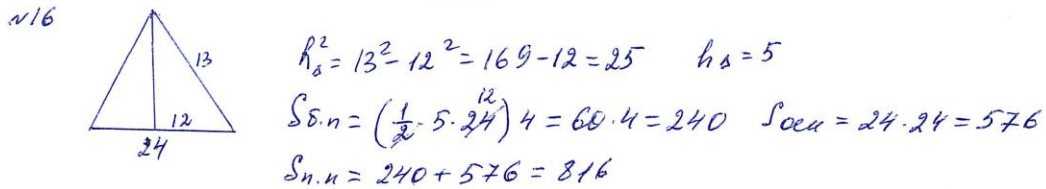 №16
13
12
24
h²▵ = 13² - 12² = 169 - 12 = 25 h▵ = 5
Sб.п = (1/2 · 5 · 24) 4 = 60 · 4 = 240 Sосн = 24 · 24 = 576
12
Sп.п = 240 + 576 = 816